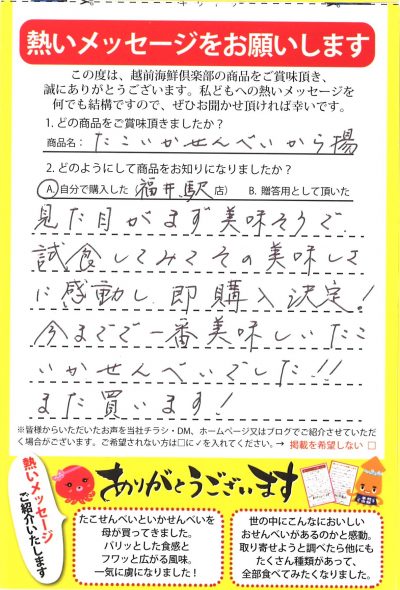 熱いメッセージをお願いします
この度は、越前海鮮倶楽部の商品をご賞味頂き、
誠にありがとうございます。私どもへの熱いメッセージを
何でも結構ですので、ぜひお聞かせ頂ければ幸いです。
1. どの商品をご賞味頂きましたか?
商品名: たこいかせんべいから揚
2. どのようにして商品をお知りになりましたか?
A.自分で購入した(福井駅店) B. 贈答用として頂いた
見た目がまず美味そうで、
試食してみてその美味しさ
に感動し、即購入決定!
今までで一番美味しいたこ
いかせんべいでした!!
また買います!
※皆様からいただいたお声を当社チラシ・DM、ホームページ又はブログでご紹介させていただ
く場合がございます。ご希望されない方は□に✓を入れてください。→ 掲載を希望しない □
熱いメッセージ
ご紹介いたします
ありがとうございます
たこせんべいといかせんべいを
母が買ってきました。
パリッとした食感と
フワッと広がる風味。
一気に虜になりました!
世の中にこんなにおいしい
おせんべいがあるのかと感動。
取り寄せようと調べたら他にも
たくさん種類があって、
全部食べてみたくなりました。